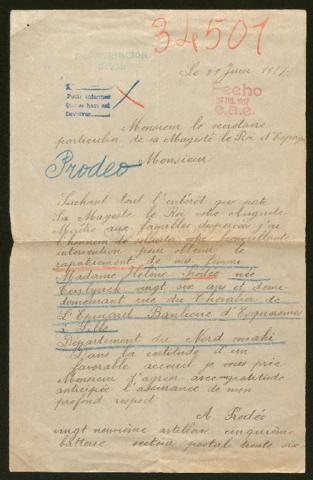 34501
Le 29 Juin 1917
Fecho
e.a.e.
Para informar
Que se hará así
Devolver
Monsieur le secretaire
particulier de sa Magesté le Roi d'Espagne
Prodeo
Monsieur
Sachant tout l'interet que porte
Sa Magesté le Roi votre Auguste
Maître aux familles dispersées j'ai
l'honneur de solliciter votre bienveillante
intervention pour obtenir le
rapatriement de ma femme
Madame Hélène Prodéo née
vingt six ans et demi
demeurant rue du Chevalier de
L'Epinard Banlieue d'Esquermes
à Lille
Département du Nord
Dans la certitude d'un
favorable accueil je vous prie
Monsieur d'agréer avec gratitude
anticipée l'assurance de mon
profond respect
A Prodéo
vingt neuvième artillerie cinquième
batterie secteur postal trente six